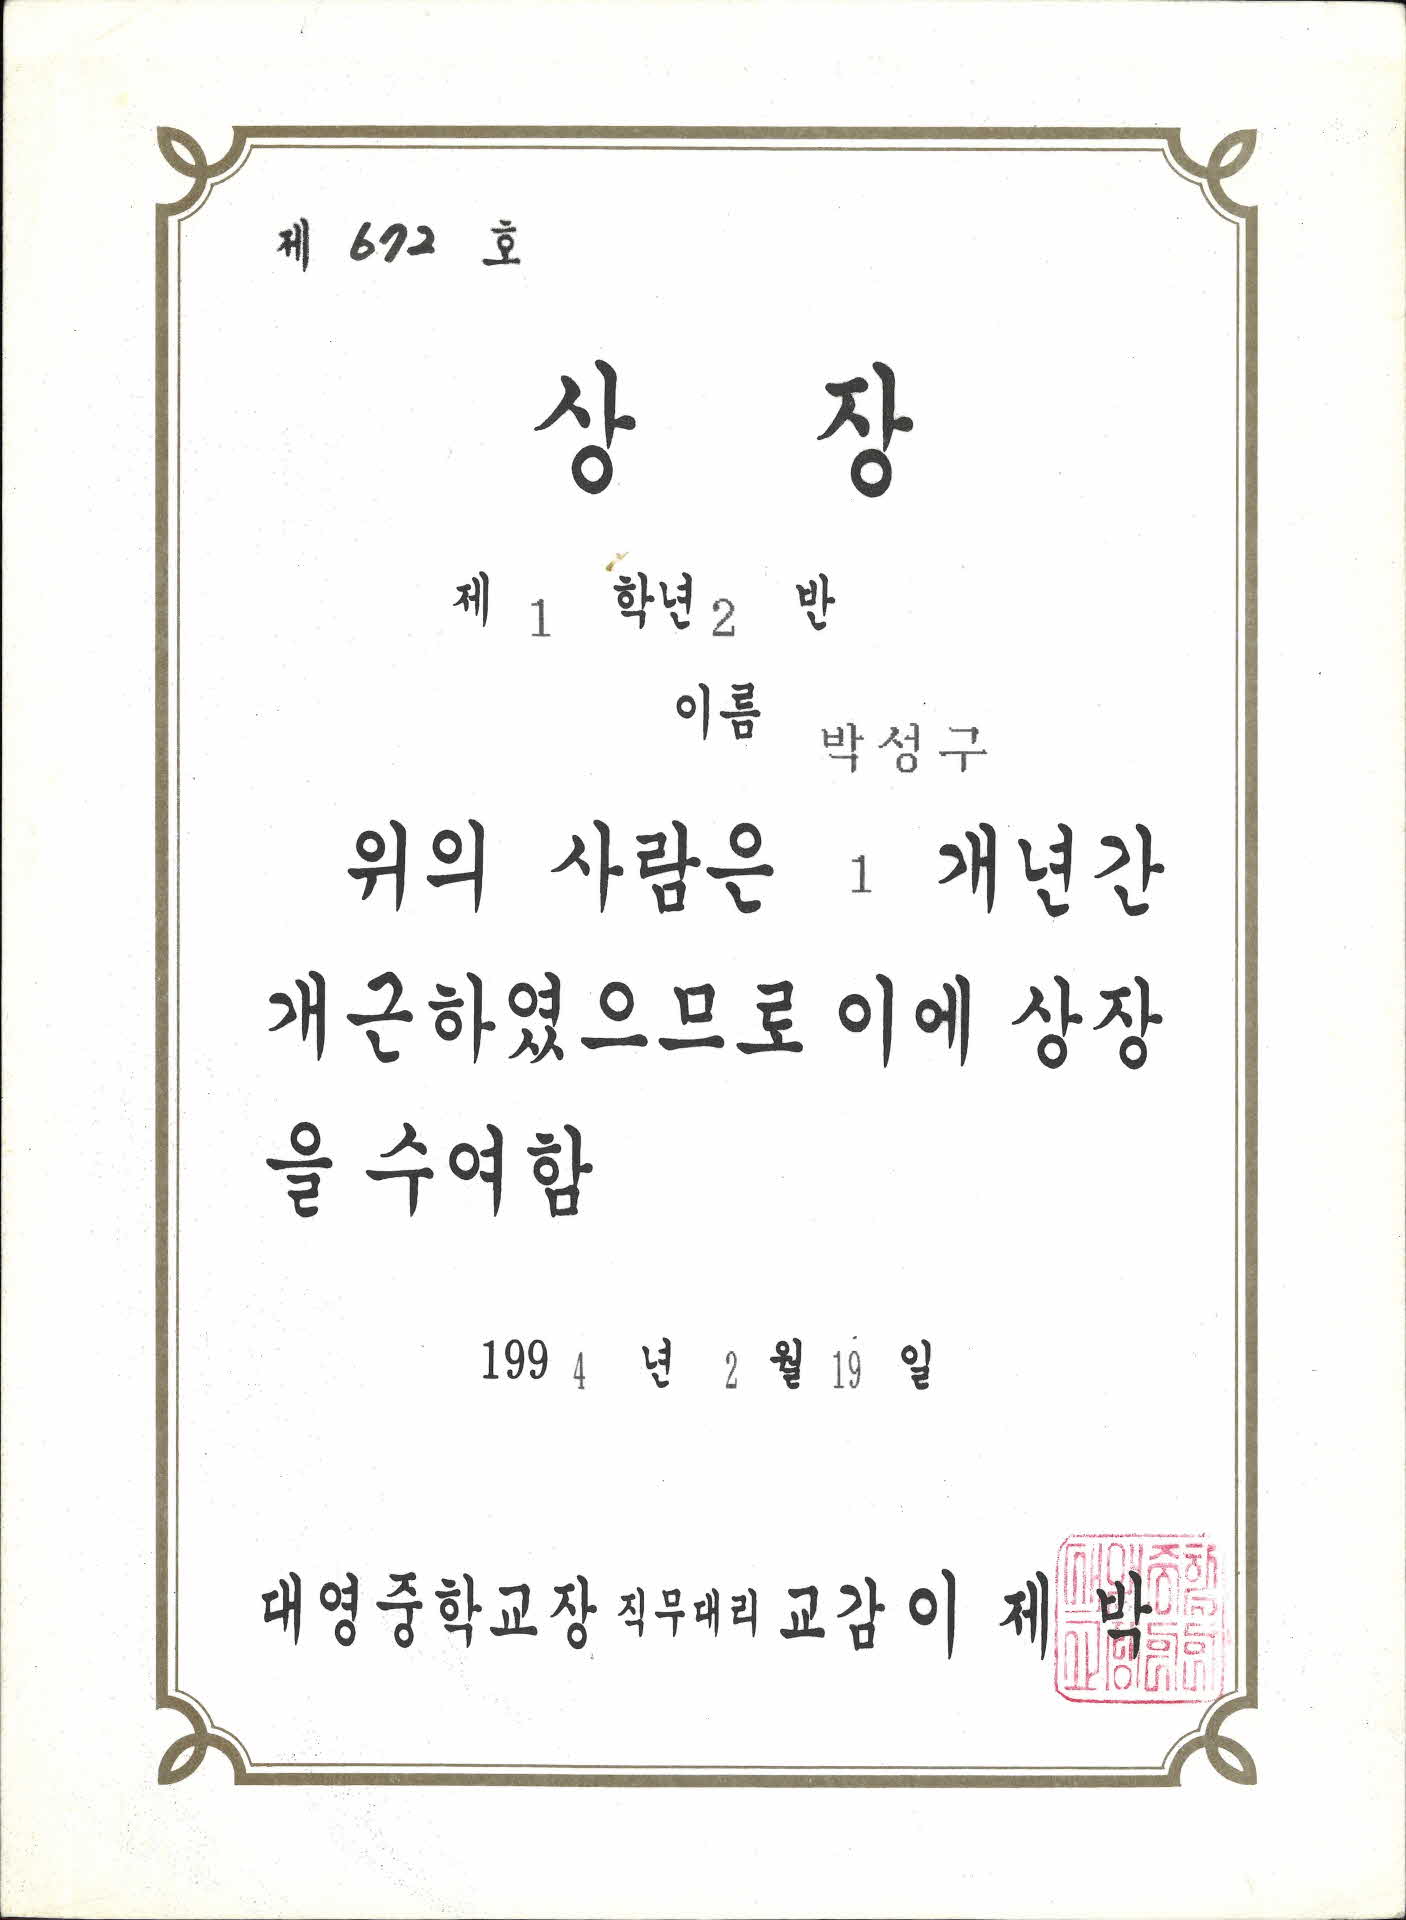 제 672 호
상 장
제 1 학년 2 반
이름 박성구
위의 사람은 1 개년간
개근하였으므로 이에 상장
을 수여함
1994 년 2 월 19 일
대영중학교장 직무대리 교감 이 제 박